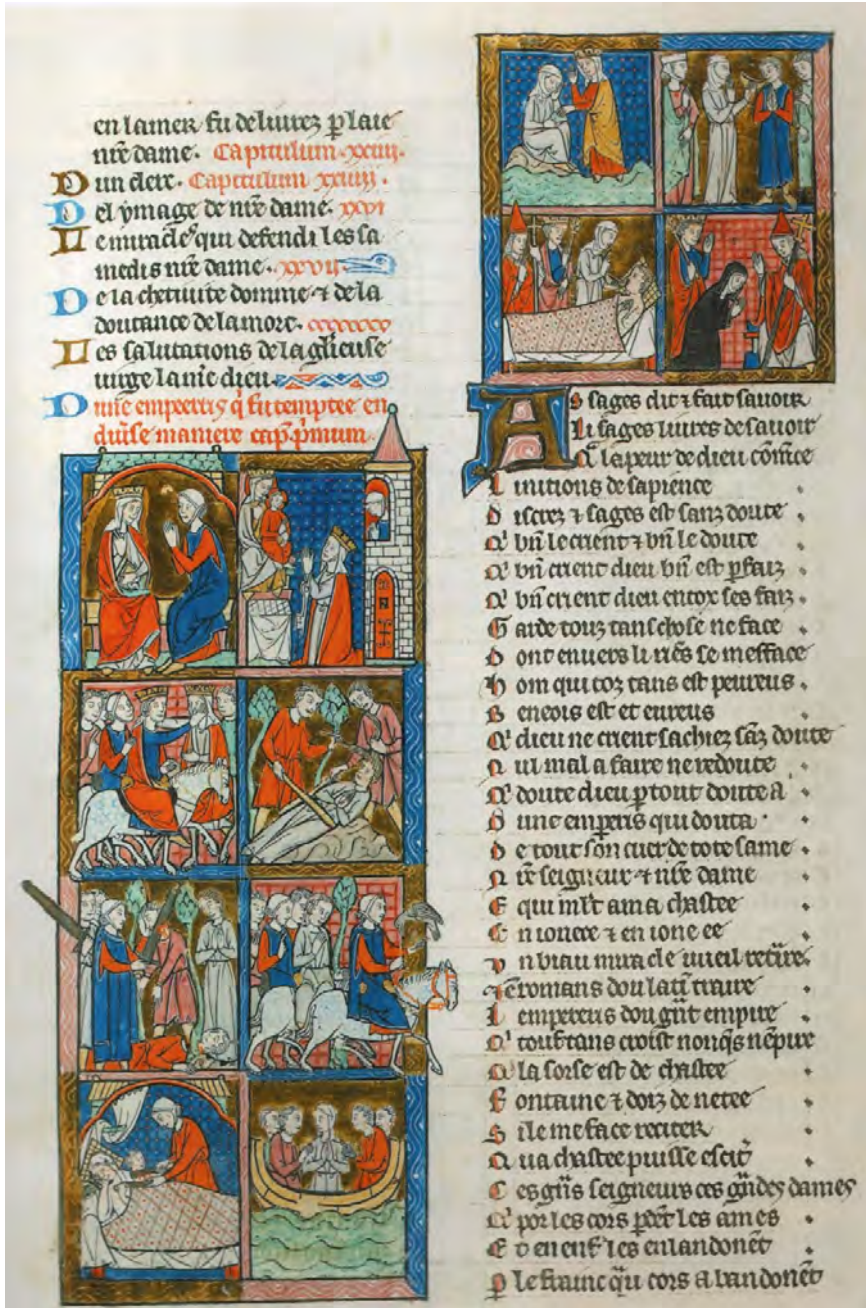 en la mer fu deliurez p laie
nr̃e dame. Capitulum. xxiij.
D un clerc. Capitulum xxiiij.
D el ymage de nr̃e dame. xxvi
L e miracle qui defendi les sa
medis nr̃e dame. xxvij
D e la chetiuite domme ⁊ de la
doutance de la mort.
L es salutations de la gl̃ieuse
uirge la m̃e dieu.
D une empeeris q̃ fu temptee en
diu̾se maniere cap̃. p̾mum.
A s sages dit ⁊ fait sauoir
Li sages liures de sauoir
Q̾ la peur de dieu cõm̃ce
L initions de sapience
D iscrez ⁊ sages est sanz doute
Q̾ bñ le crient ⁊ bñ le doute
Q̾ bñ crient dieu bñ est p̱faiz
Q̾ bñ crient dieu en toz ses faiz
G arde touz tans chose ne face
D ont enuers li riẽs se mefface
H om qui toz tans est peureus
B eneois est et eureus
Q̾ dieu ne crient sachiez sãz doute
N ul mal a faire ne redoute
Q̾ doute dieu p̱ tout doute a
D une emp̱eris qui douta
D e tout son cuer de tote same
N r̃e seigneur ⁊ nr̃e dame
E qui ml̃t ama chastee
E n ionece ⁊ en ione ee
V n biau miracle uueil retr̾e
⁊ ẽ romans dou lati traire
L empereris dou gñt empire
Q̾ touz tans croist nonq̾s nẽpire
Q̾ la sorse est de chastee
F ontaine ⁊ doiz de netee
S i le me face reciter
Q ua chastee puisse esciť
C es gñs seigneurs ces gñdes dames
Q̾ por les cors p̱dẽt les ames
E t en enf̾ les enlandonẽt
P le frainc qũ cors abandonẽt